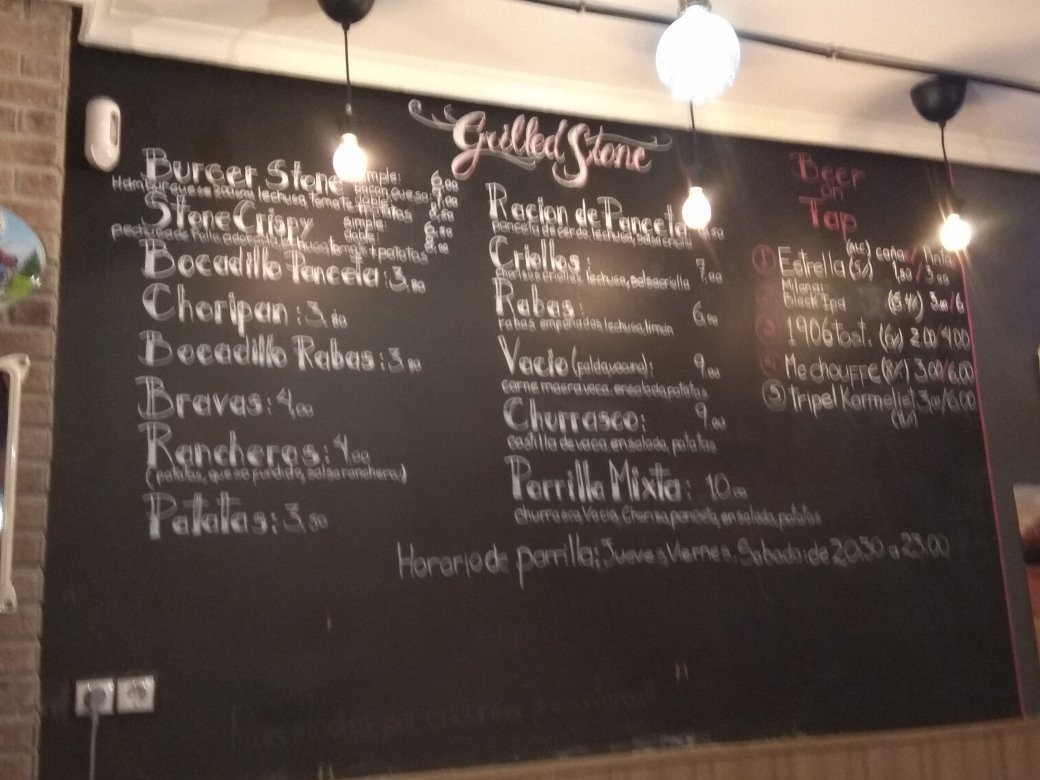 Grilled Stone
Burger Stone
simple: 6,00
Stone Crispy
simple:
Bocadillo Panceta: 3,50
Choripan: 3,50
Bocadillo Rabas: 3,50
Bravas: 4,00
Rancheras: 4,00
(patatas, queso fundido, salsa ranchera)
Patatas: 3,50
Racion de Panceta
panceta de cerdo, lechuga, salsa criolla
Criollos: 7,00
chorizos criollos, lechuga, salsa criolla
Rabas: 6,00
rabas empanadas, lechuga, limón
Vacio (falda vacuno): 9,00
carne magra vaca, ensalada, patatas
Churrasco: 9,00
costilla de vaca, ensalada, patatas
Parrilla Mixta: 10,00
Churrasco, Vacio, Chorizo, panceta, ensalada, patatas
Horario de parrilla: Jueves, Viernes, Sabado: de 20:30 a 23:00
Beer
on
Tap
caña / Pinta
1 Estrella 1,50 / 3,00
Milana:
Black Ipa 3,00 / 6
1906 tost. 2,00 4,00
4 Mc chouffe (8%) 3,00/6,00
5 tripel Karmeliet 3,00/6,00